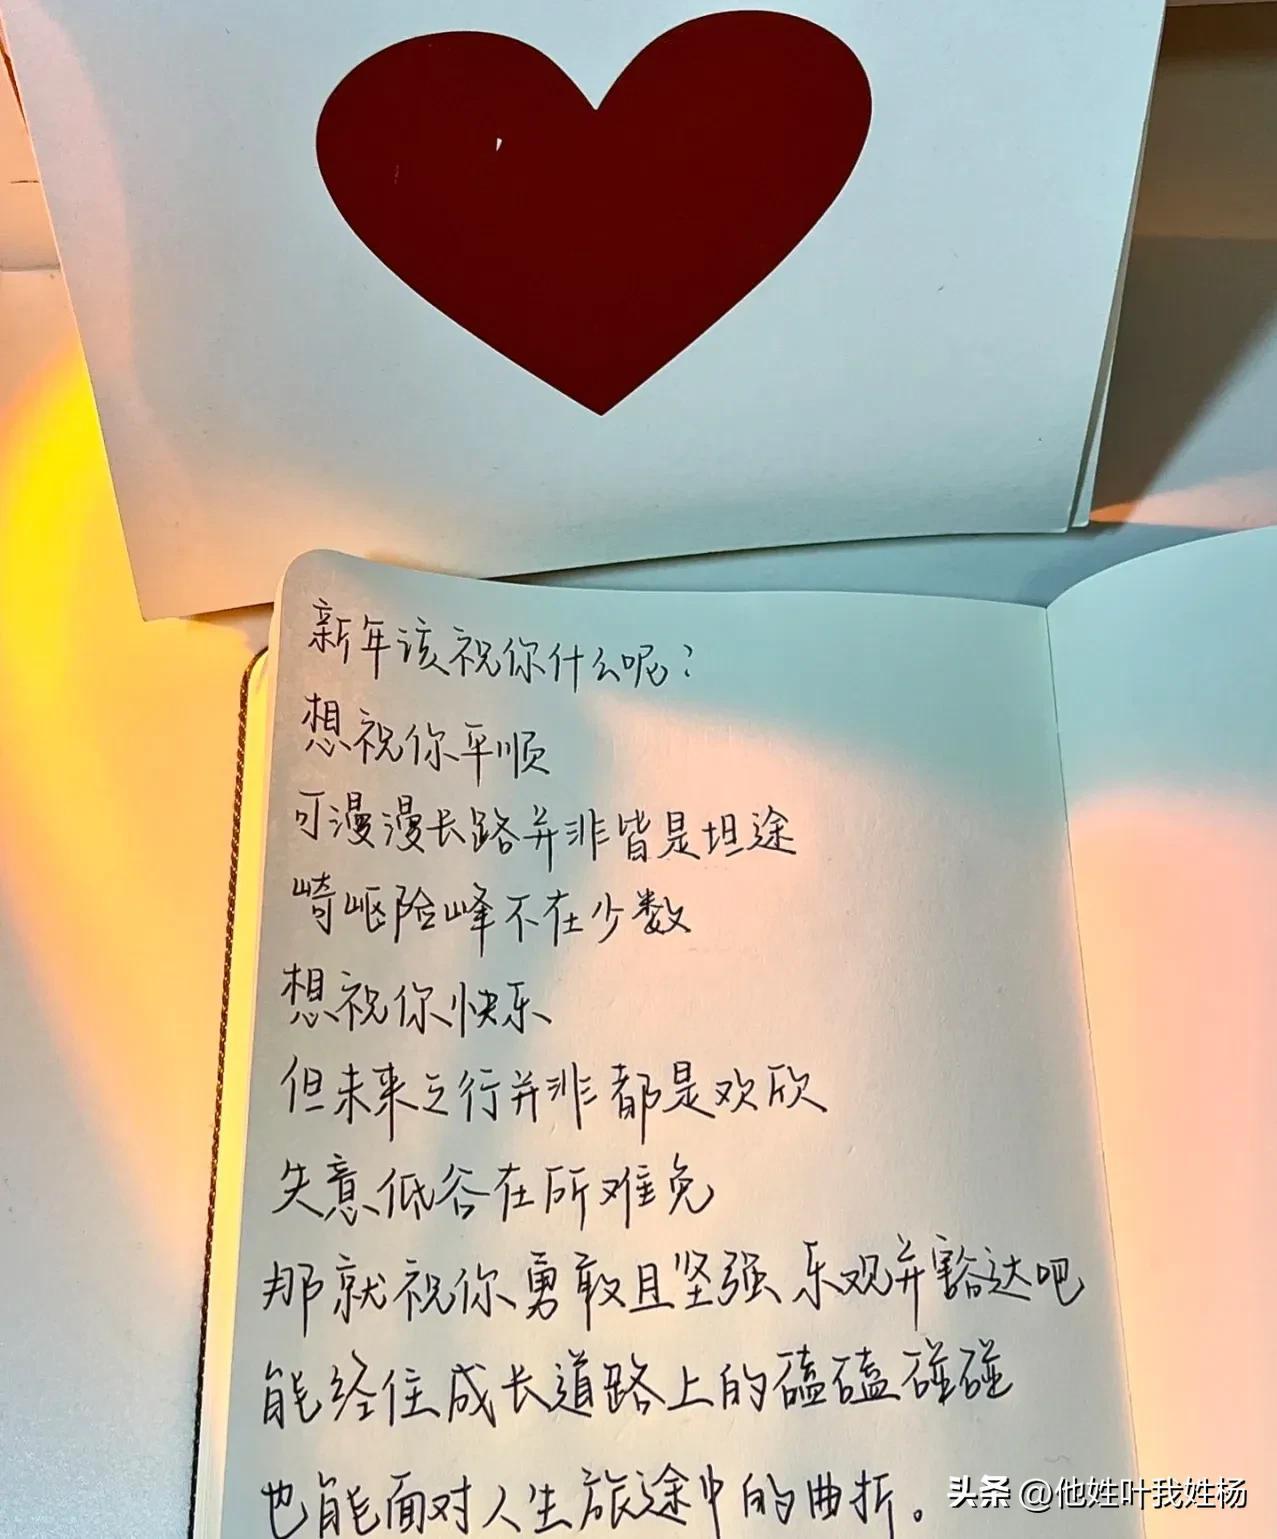 新年该祝你什么呢？
想祝你平顺
可漫漫长路并非皆是坦途
崎岖险峰不在少数
想祝你快乐
但未来之行并非都是欢欣
失意低谷在所难免
那就祝你勇敢且坚强 乐观并豁达吧
能经住成长道路上的磕磕碰碰
也能面对人生旅途中的曲折。
头条 @他姓叶我姓杨